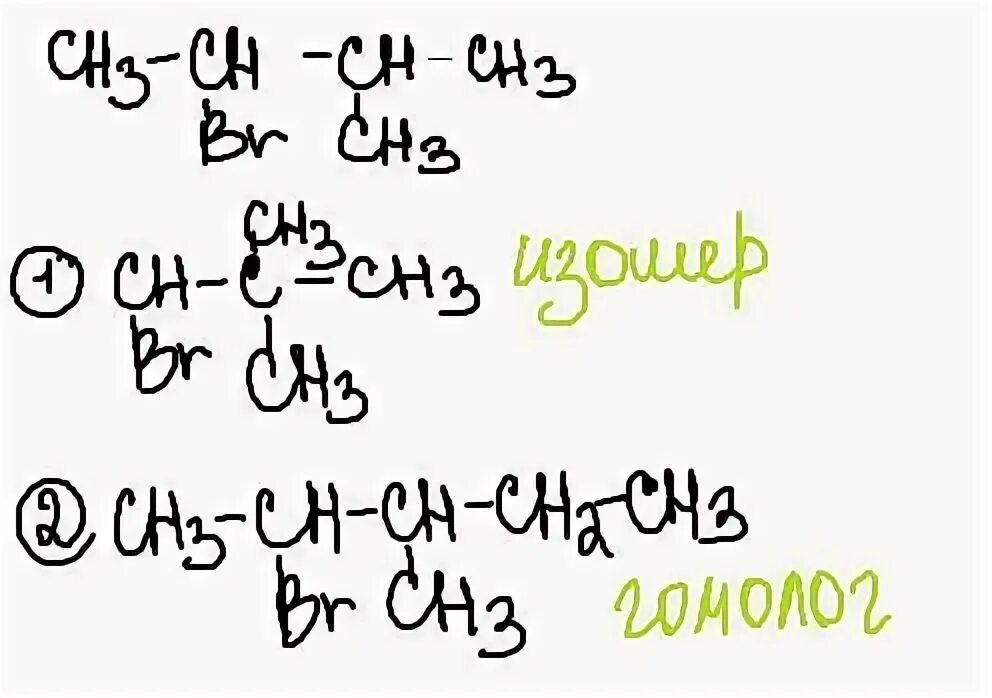 CH3-CH-CH-CH3
Br CH3
CH3
1 CH-C-CH3 изомер
Br CH3
2 CH3-CH-CH-CH2-CH3
Br CH3 гомолог